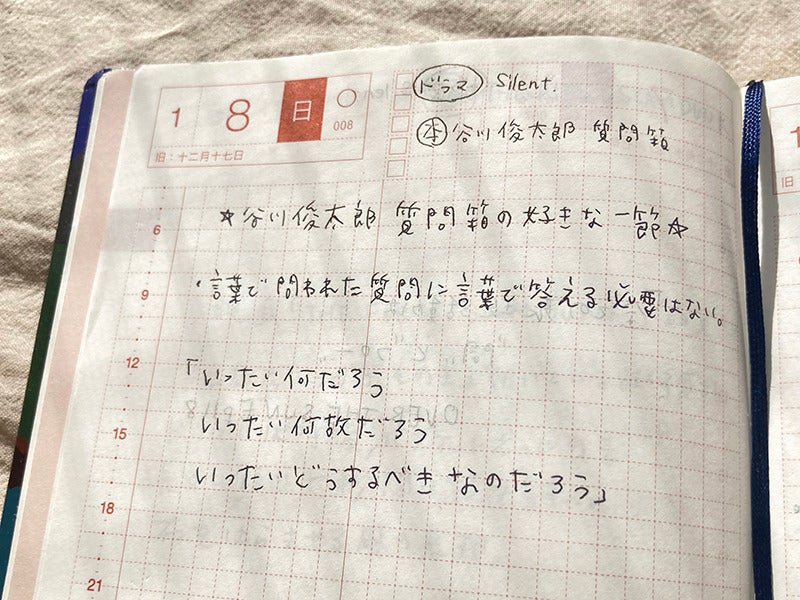 1 8 日 ○
008
旧：十二月十七日
ドラマ Silent.
本 谷川俊太郎 質問箱
☆谷川俊太郎 質問箱の好きな一節☆
6
・言葉で問われた質問に言葉で答える必要はない。
9
12
「いったい何だろう
いったい何故だろう
15
いったいどうするべきなのだろう」
18
21
1
旧